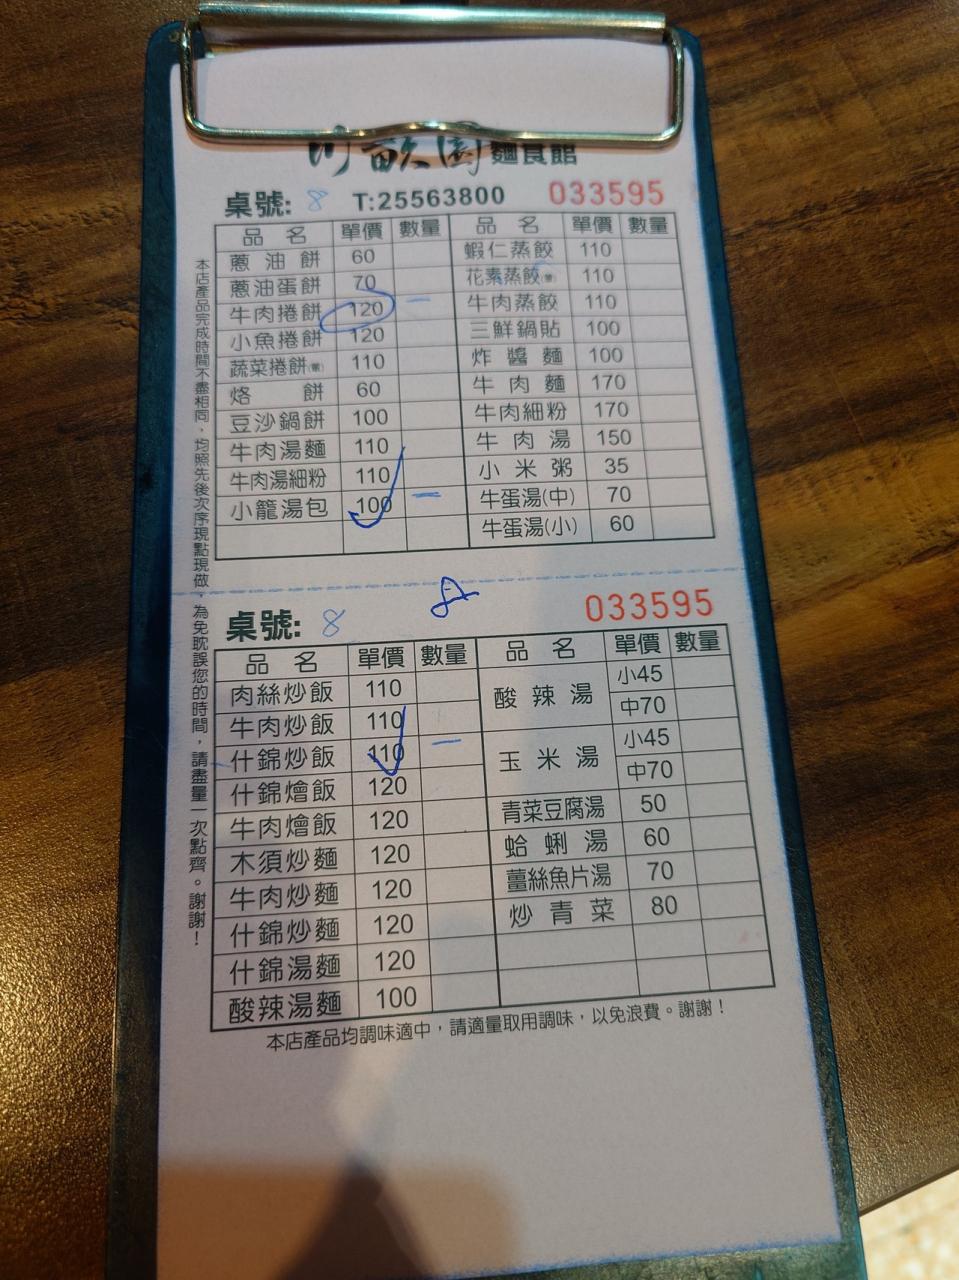 川畝園麵食館
桌號: 8 T:25563800 033595
品名 單價 數量 品名 單價 數量
蔥油餅 60 蝦仁蒸餃 110
蔥油蛋餅 70 花素蒸餃 110
牛肉捲餅 120 一 牛肉蒸餃 110
小魚捲餅 120 三鮮鍋貼 100
蔬菜捲餅 110 炸醬麵 100
烙餅 60 牛肉麵 170
豆沙鍋餅 100 牛肉細粉 170
牛肉湯麵 110 牛肉湯 150
牛肉湯細粉 110 小米粥 35
小籠湯包 100 一 牛蛋湯(中) 70
牛蛋湯(小) 60
本店產品完成時間不盡相同，均照先後次序現點現做，為免耽誤您的時間，請盡量一次點齊。謝謝！
桌號: 8 033595
品名 單價 數量 品名 單價 數量
肉絲炒飯 110 酸辣湯 小45
牛肉炒飯 110 中70
什錦炒飯 110 一 玉米湯 小45
什錦燴飯 120 中70
牛肉燴飯 120 青菜豆腐湯 50
木須炒麵 120 蛤蜊湯 60
牛肉炒麵 120 薑絲魚片湯 70
什錦炒麵 120 炒青菜 80
什錦湯麵 120
酸辣湯麵 100
本店產品均調味適中，請適量取用調味，以免浪費。謝謝！